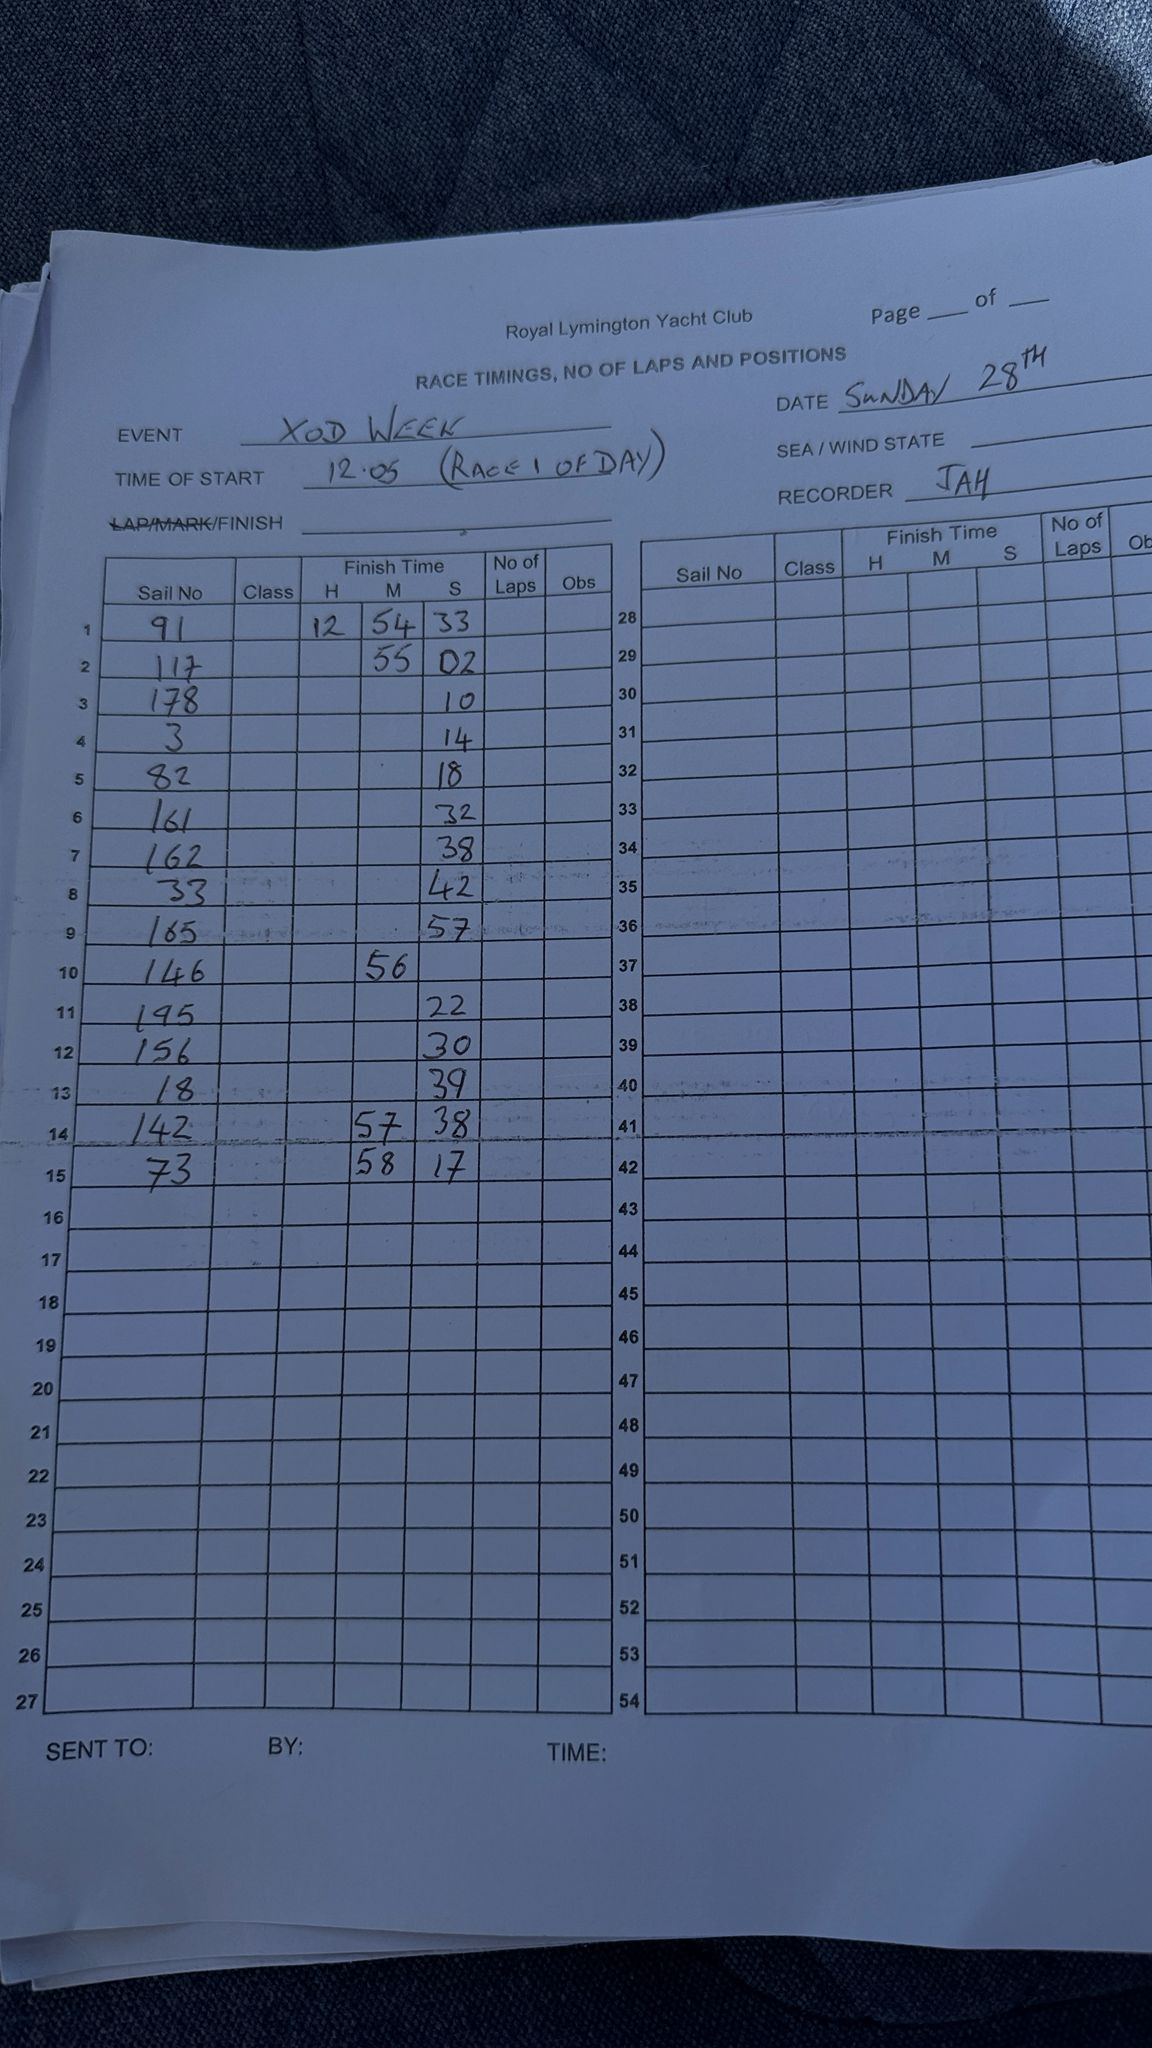 Royal Lymington Yacht Club
Page ___ of ___
RACE TIMINGS, NO OF LAPS AND POSITIONS
DATE SUNDAY 28TH
EVENT XOD WEEK
SEA / WIND STATE
TIME OF START 12.05 (RACE 1 OF DAY)
RECORDER JAH
LAP/MARK/FINISH
Sail No Class Finish Time H M S No of Laps Obs
1 91 12 54 33
2 117 55 02
3 178 10
4 3 14
5 82 18
6 161 32
7 162 38
8 33 42
9 165 57
10 146 56
11 195 22
12 156 30
13 18 39
14 142 57 38
15 73 58 17
16
17
18
19
20
21
22
23
24
25
26
27
Sail No Class Finish Time H M S No of Laps Ob
28
29
30
31
32
33
34
35
36
37
38
39
40
41
42
43
44
45
46
47
48
49
50
51
52
53
54
SENT TO: BY: TIME: